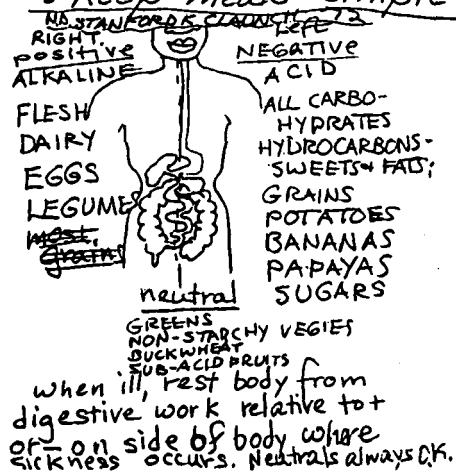 KEEP MEALS SIMPLE
N.D. STANFORD K. CLAUNCH 72
RIGHT
positive
ALKALINE
FLESH
DAIRY
EGGS
LEGUMES
most
Grains
Left
NEGATIVE
ACID
ALL CARBO-
HYDRATES
HYDROCARBONS-
SWEETS & FATS;
GRAINS
POTATOES
BANANAS
PAPAYAS
SUGARS
neutral
GREENS
NON-STARCHY VEGIES
BUCKWHEAT
SUB-ACID FRUITS
when ill, rest body from
digestive work relative to +
or - on side of body where
sickness occurs. Neutrals always O.K.